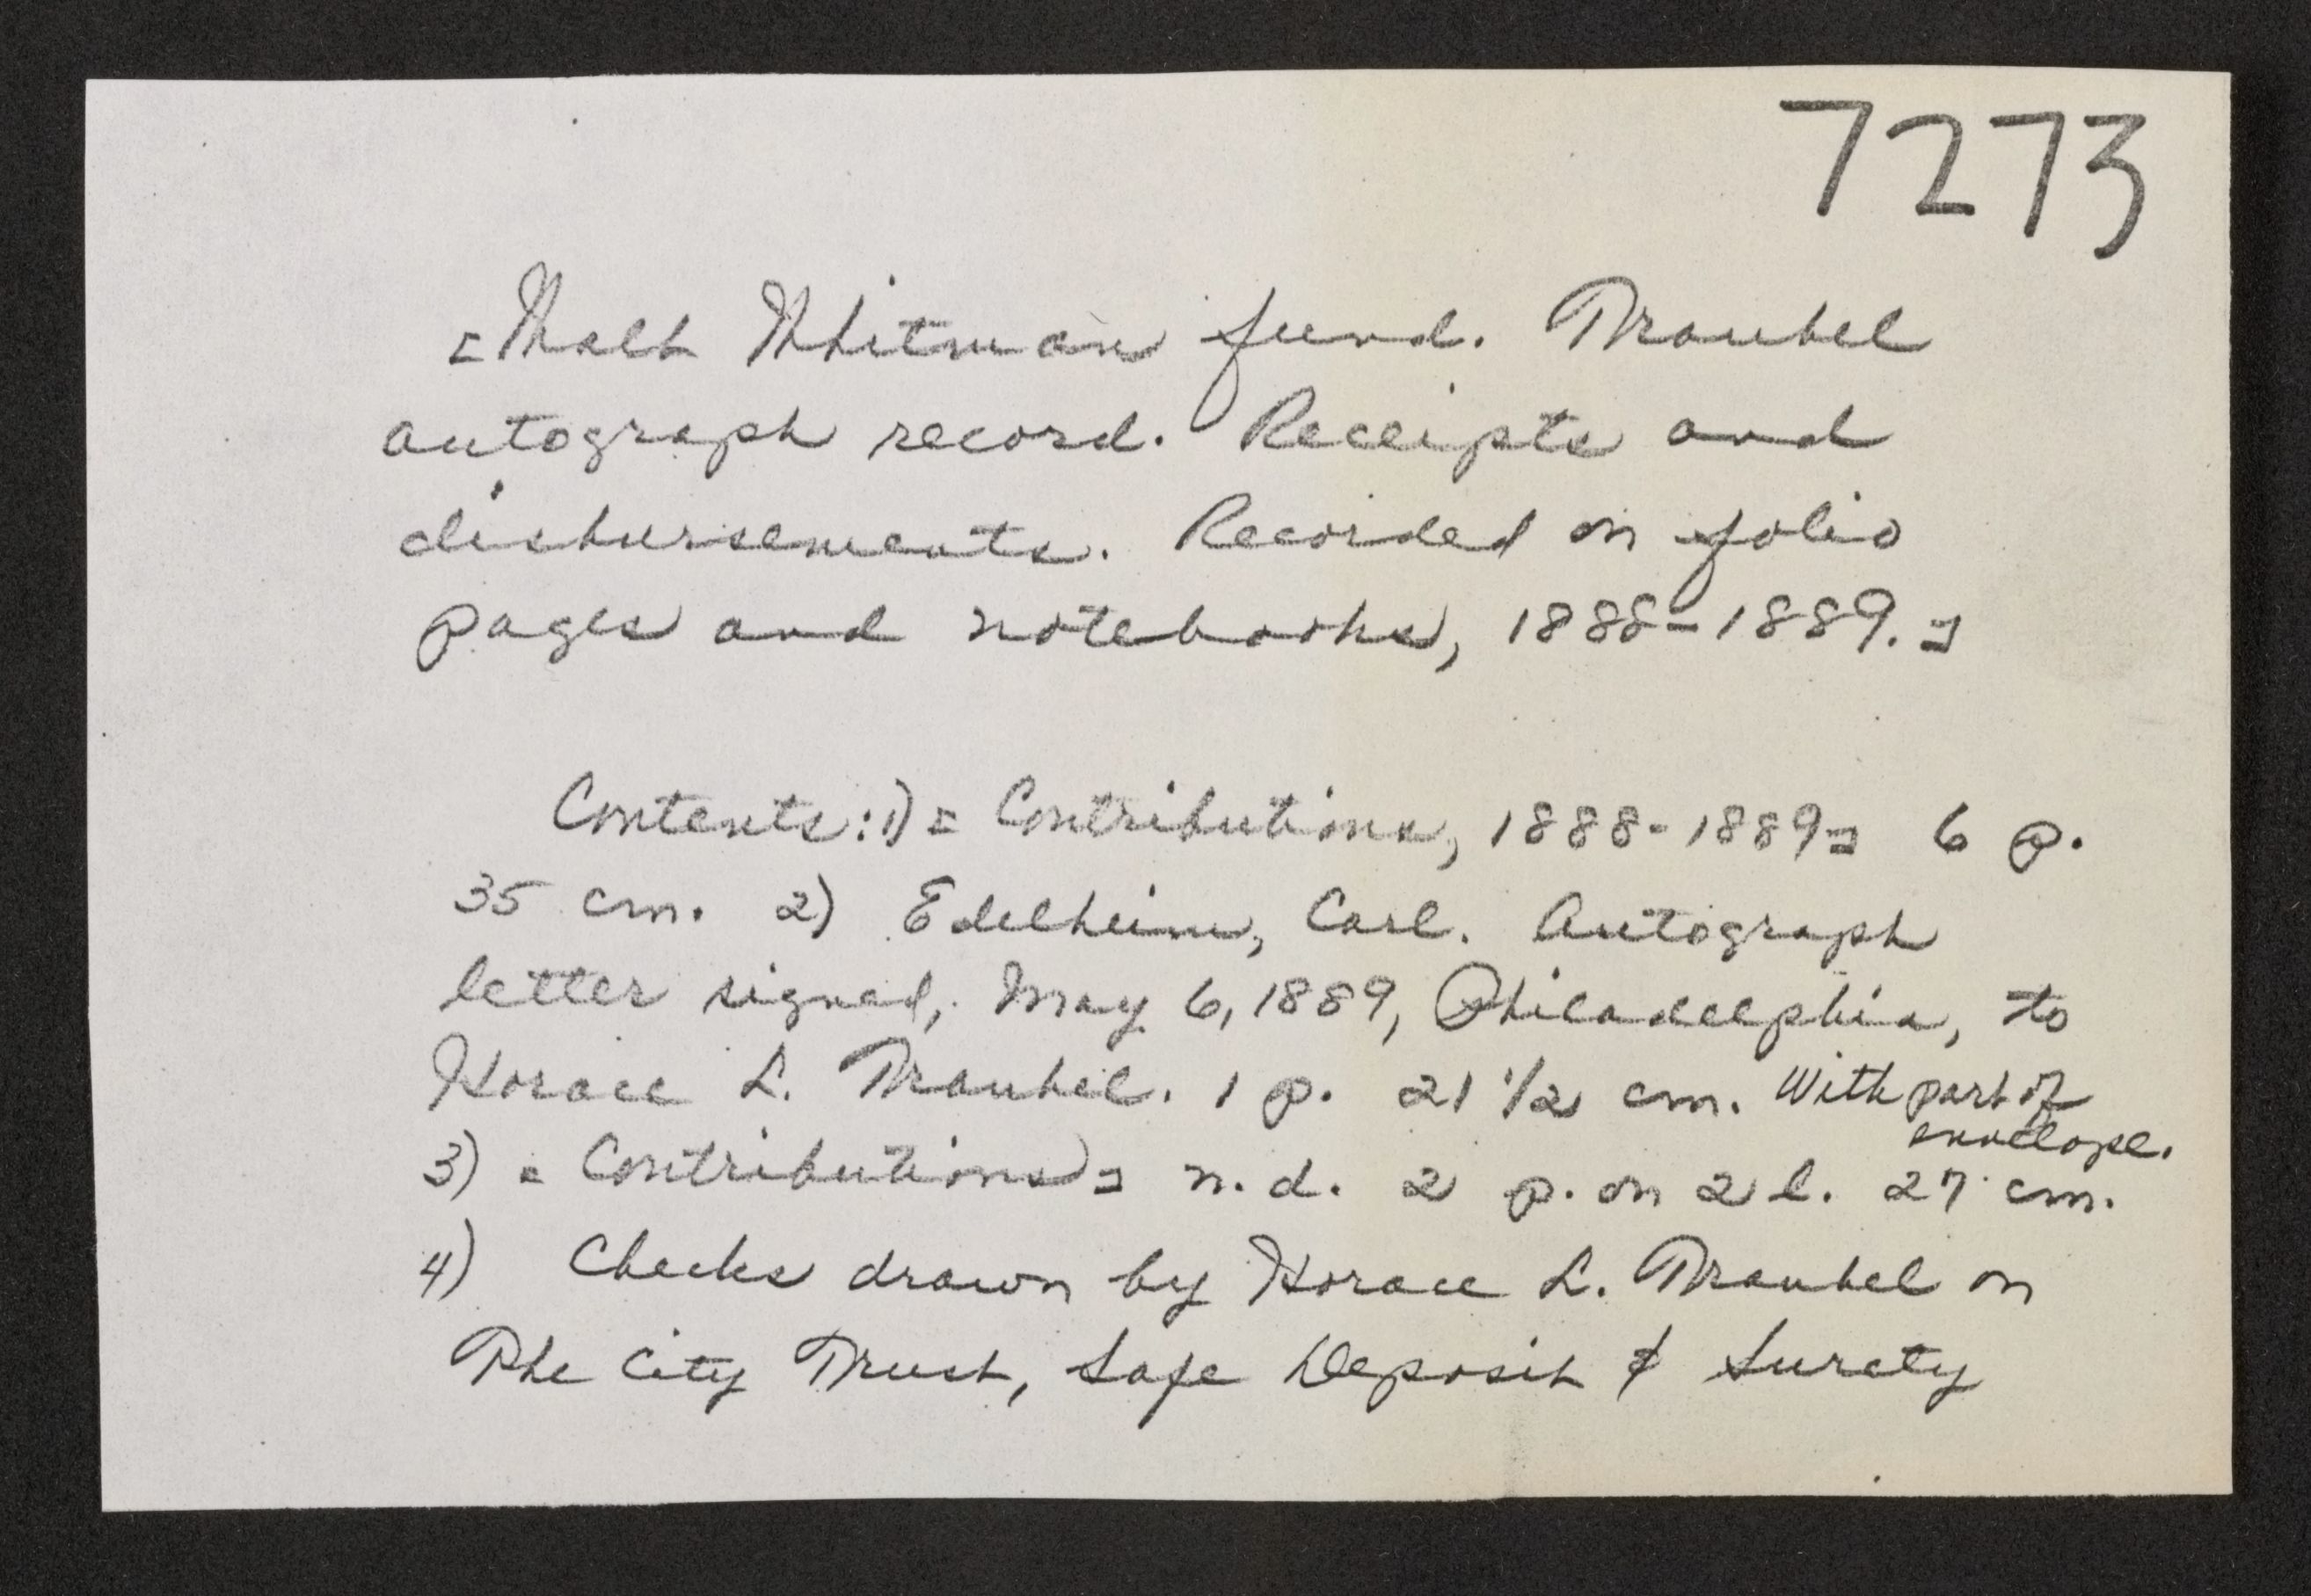 7273
[Walt Whitman fund. Traubel
autograph record. Receipts and
disbursements. Recorded on folio
pages and notebooks, 1888-1889.]
Contents: 1) [Contributions, 1888-1889] 6 p.
35 cm. 2) Edelheim, Carl. Autograph
letter signed, May 6, 1889, Philadelphia, to
Horace L. Traubel. 1 p. 21 1/2 cm. With part of
envelope.
3) [Contributions] n.d. 2 p. on 2 l. 27 cm.
4) Checks drawn by Horace L. Traubel on
The City Trust, Safe Deposit & Surety